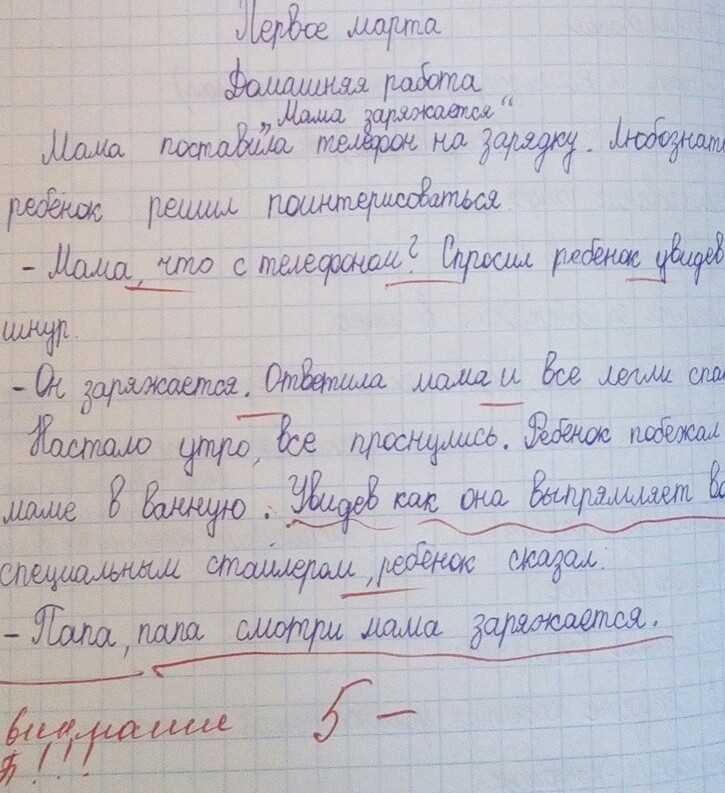 Первое марта
Домашняя работа
„Мама заряжается“
Мама поставила телефон на зарядку. Любознат
ребенок решил поинтерисоваться
- Мама, что с телефоном? Спросил ребенок увидев
шнур.
- Он заряжается. Ответила мама и все легли спа
Настало утро, все проснулись. Ребенок побежал
маме в ванную. Увидев как она выпрямляет во
специальным стайлером, ребенок сказал:
- Папа, папа смотри мама заряжается.
5 -
!!!